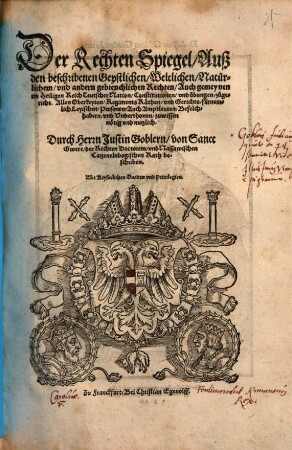 Der Rechten Spiegel/ Auß
den beschribenen Geystlichen/ Weltlichen/ Natür-
lichem/ vnd andern gebreuchlichen Rechten/ Auch gemeynen
im Heiligen Reich Teutscher Nation/ Constitutionen/ vnd
Allen Oberkeyten/ Regiments Räthen/ vnd Gerichts
Personen/ Auch Amptleuten/ Befelch
habern/ vnd Vnderthonen/ zuwissen
nötig vnd nutzlich.
Durch Herrn Justin Goblern/ von Sanct
Gewere/ der Rechten Doctorem/ vnd Nassawischen
Catzenelnbogischen Rath be-
schriben.
Mit Keyserlichen Gnaden vnd Priuilegien.
Carolus
V.
Ferdinandus Romanorum
Rex.
Zu Franckfurt/ Bei Christian Egenolff.